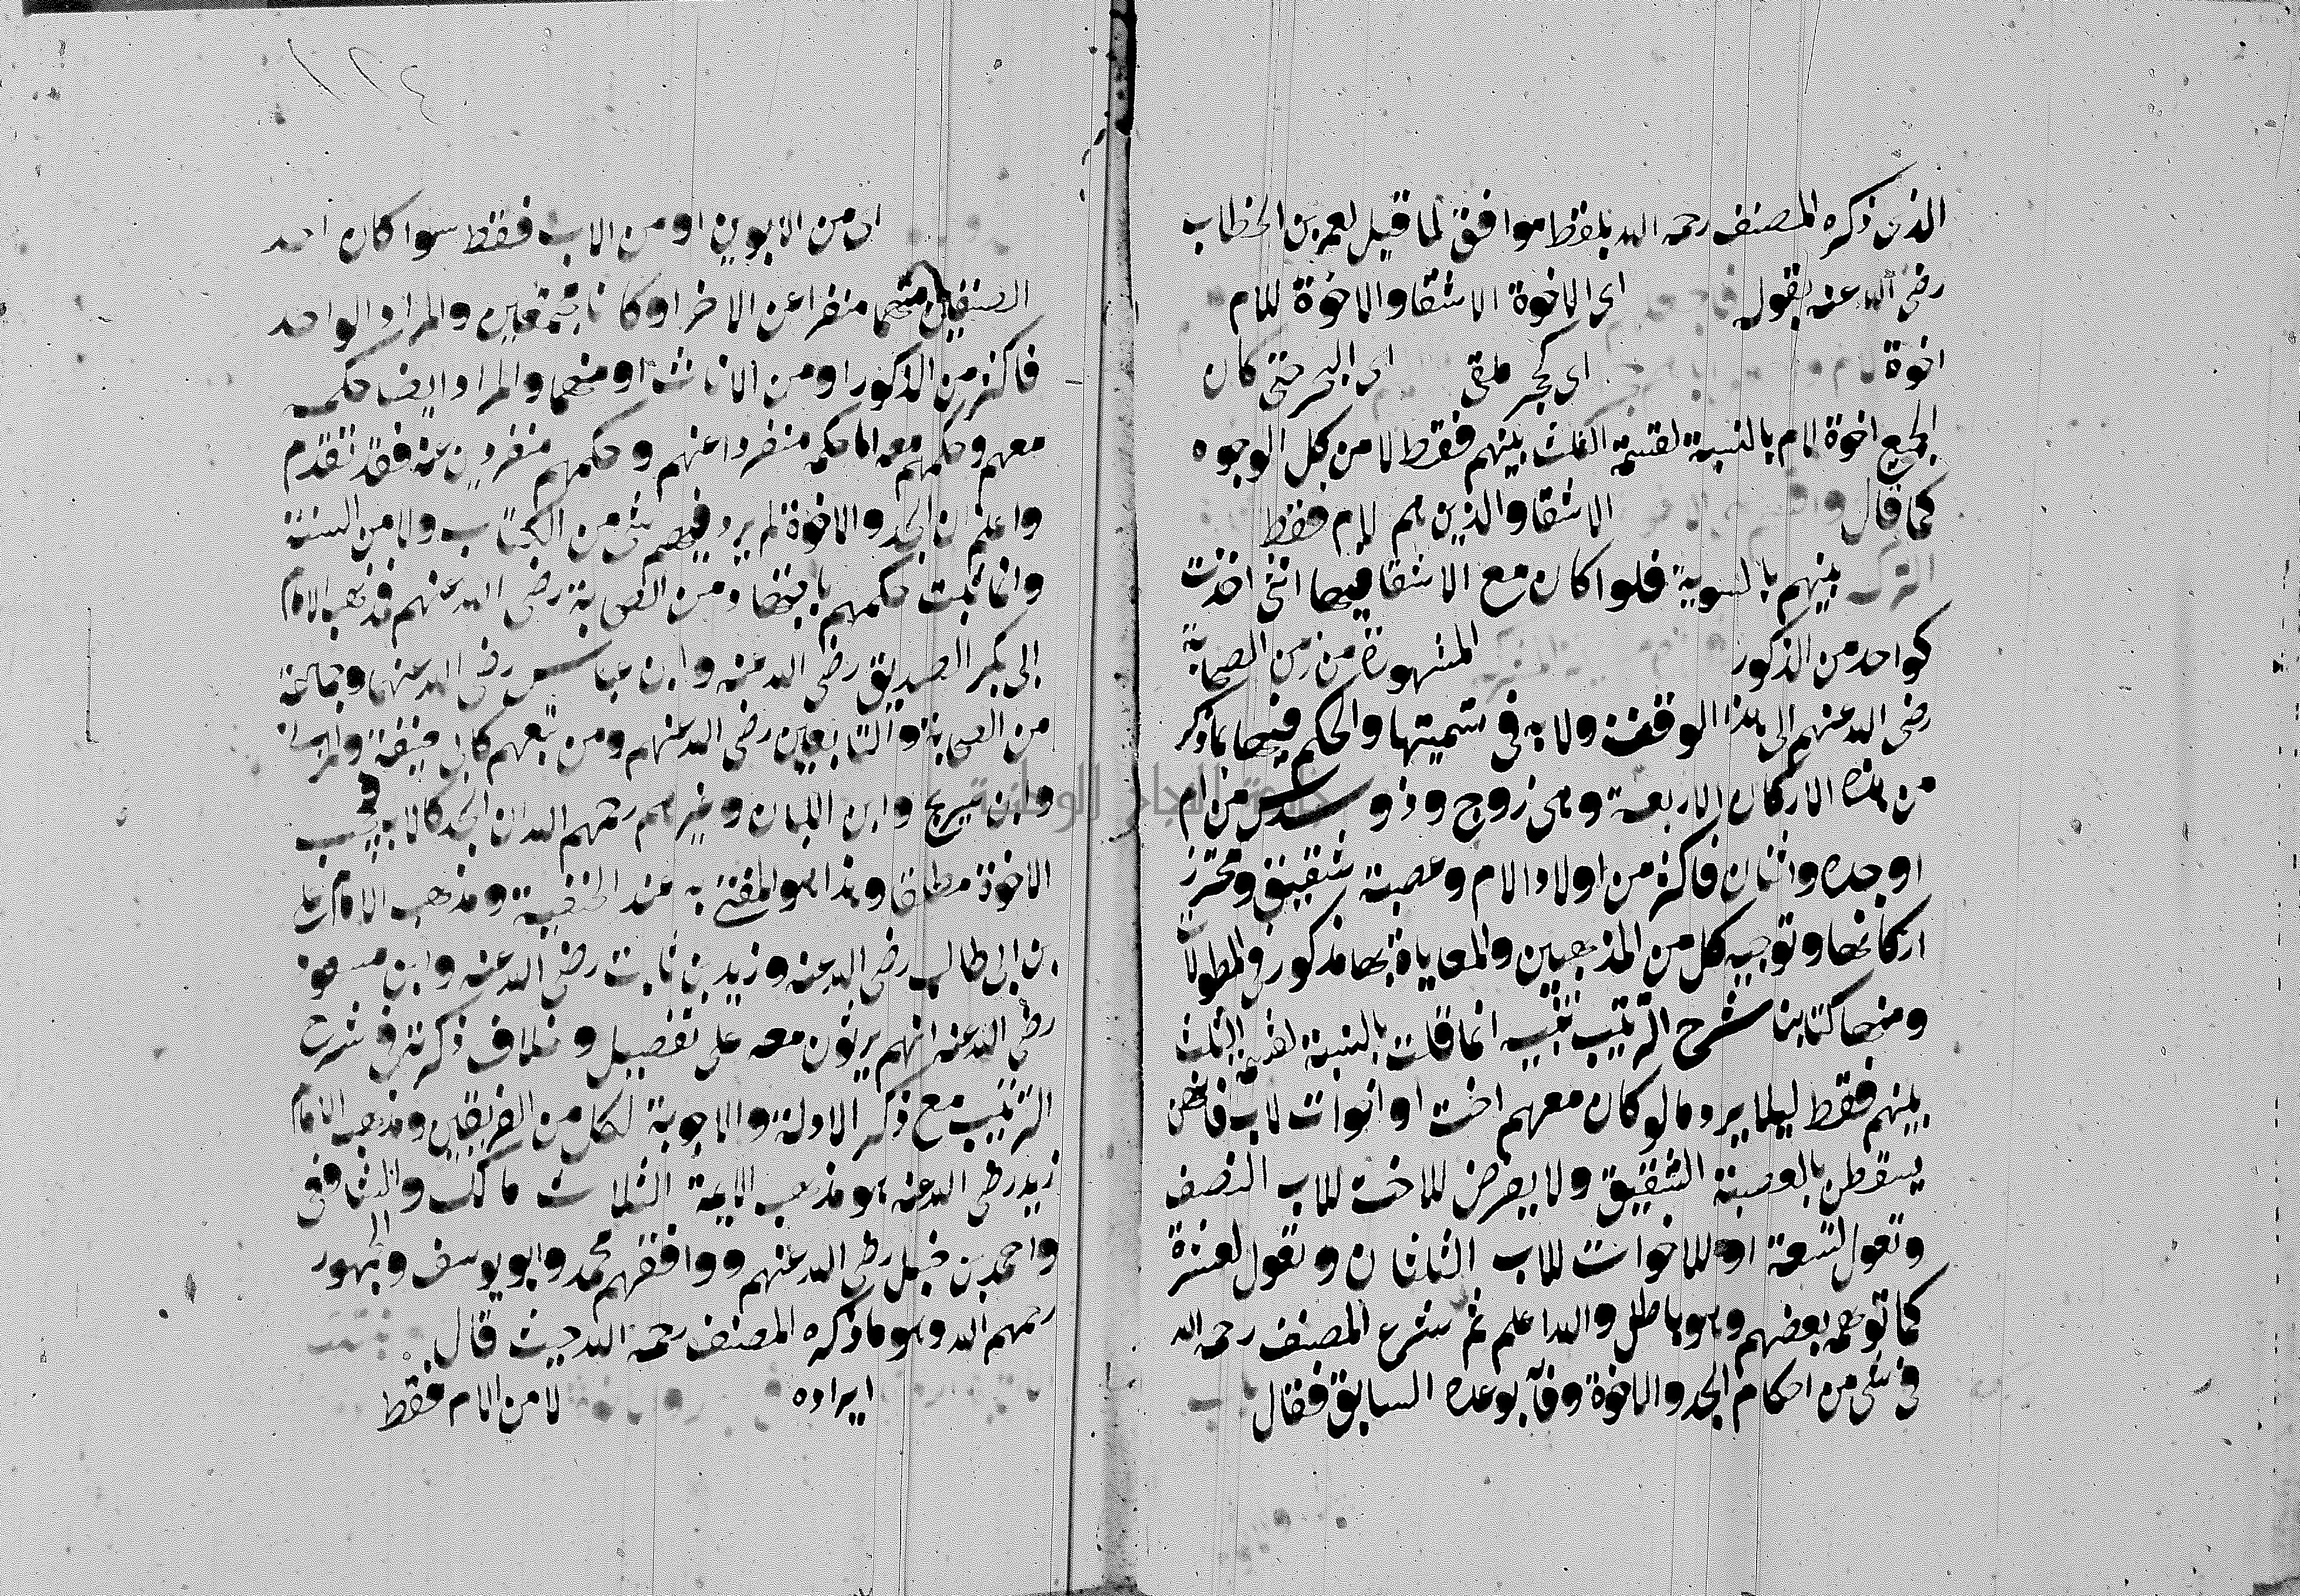 الذى ذكره المصنف رحمه الله بلفظ موافق لما قيل لعمر بن الخطاب
رضى الله عنه بقوله اى الاخوة الاشقا والاخوة للام
اخوة اى كحجر ملقى اى البحر حتى كان
الجميع اخوة لام بالنسبة لقسمة الثلث بينهم فقط لا من كل الوجوه
كما قال الاشقا والذين هم لام فقط
بينهم بالسوية فلو كان مع الاشقا فيها انثى اخذت
كواحد من الذكور المشهورة من زمن الصحابة
رضى الله عنهم الى هذا الوقف ولابد فى تسميتها والحكم فيها بما ذكر
من هذه الاركان الاربعة وهى زوج وذو سدس من ام
او جده واثنان فاكثر من اولاد الام وعصبة شقيق ومحترز
اركانها وتوجيه كل من المذهبين والمعاياة بها مذكور فى المطولات
ومنها كتابنا شرح الترتيب تنبيه انما قلت بالنسبة لقسمة الثلث
بينهم فقط ليلا يرد ما لو كان معهم اخت او اخوات لاب فانهن
يسقطن بالعصبة الشقيق ولا يفرض للاخت للاب النصف
وتعول لتسعة او للاخوات للاب الثلثان وتعول لعشرة
كما توهمه بعضهم وهو باطل والله اعلم ثم شرع المصنف رحمه الله
فى شى من احكام الجد والاخوة وفآ بوعده السابق فقال
١٢٤
اى من الابوين او من الاب فقط سوا كان احد
الصنفين منهما منفردا عن الاخر او كانا مجتمعين والمراد الواحد
فاكثر من الذكور او من الاناث او منهما والمراد ايضا حكمه
معهم وحكمهم معه اما حكمه منفردا عنهم وحكمهم منفردين عنه فقد تقدم
واعلم ان الجد والاخوة لم يرد فيهم شى من الكتاب ولا من السنة
وانما ثبت حكمهم باجتهاد من الصحابة رضى الله عنهم فذهب الامام
ابى بكر الصديق رضى الله عنه وابن عباس رضى الله عنهما وجماعة
من الصحابة والتابعين رضى الله عنهم ومن تبعهم كابى حنيفة
وابن سريج وابن اللبان وغيرهم رحمهم الله ان الجد كالاب فيحجب
الاخوة مطلقا وهذا هو المفتى به عند الحنفية ومذهب الامام على
بن ابى طالب رضى الله عنه وزيد بن ثابت رضى الله عنه وابن مسعود
رضى الله عنه انهم يرثون معه على تفصيل وخلاف ذكرته فى شرح
الترتيب مع ذكر الادلة والاجوبة لكل من الفريقين ومذهب الامام
زيد رضى الله عنه هو مذهب الايمة الثلاث مالك والشافعى
واحمد بن حنبل رضى الله عنهم ووافقهم محمد وابو يوسف والجمهور
رحمهم الله وهو ما ذكره المصنف رحمه الله حيث قال
ايراده لا من الام فقط